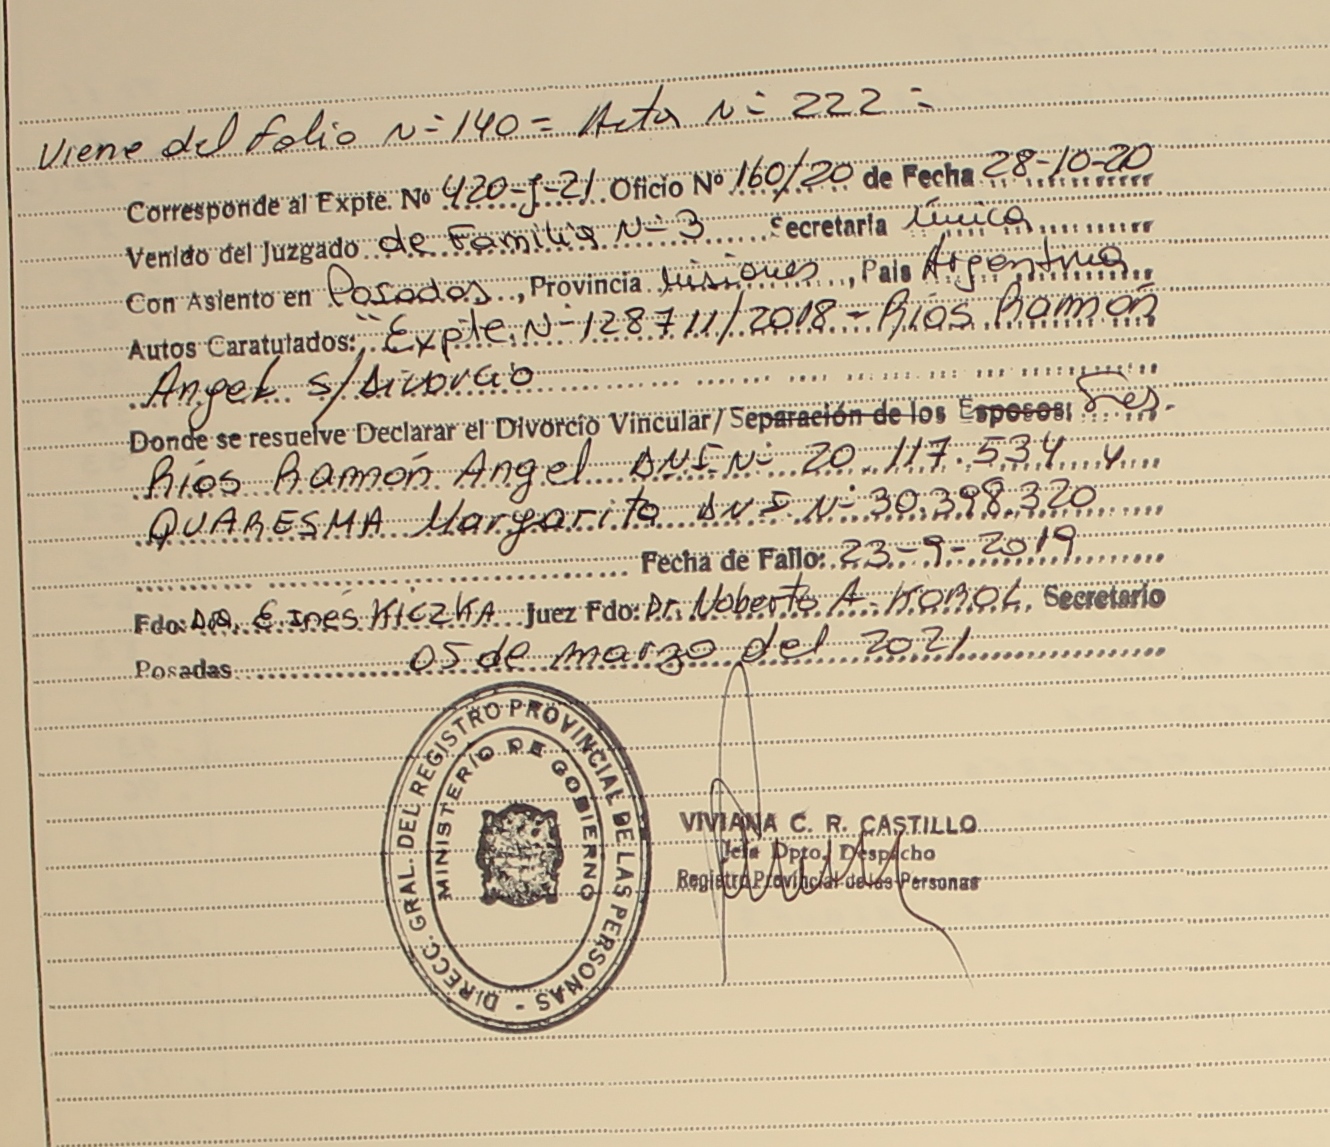 Viene del folio N= 140 = Acta N= 222 =
Corresponde al Expte. Nº 420-J-21 Oficio Nº 160/20 de Fecha 28-10-20
Venido del Juzgado de Familia N= 3 Secretaria Única
Con Asiento en Posadas, Provincia Misiones, País Argentina
Autos Caratulados: "Expte. N= 128711/2018 - Ríos Ramón
Angel s/Divorcio
Donde se resuelve Declarar el Divorcio Vincular/Separación de los Esposos: Sres.
Ríos Ramón Angel DNI N= 20.117.534 y
QUARESMA Margarita DNI N= 30.398.320
Fecha de Fallo: 23-9-2019
Fdo: Dra. E Inés KICZKA Juez Fdo: Dr. Noberto A. KOROL. Secretario
Posadas 05 de marzo del 2021
DIRECC. GRAL. DEL REGISTRO PROVINCIAL DE LAS PERSONAS -
MINISTERIO DE GOBIERNO
VIVIANA C. R. CASTILLO
Jefa Dpto. Despacho
Registro Provincial de las Personas